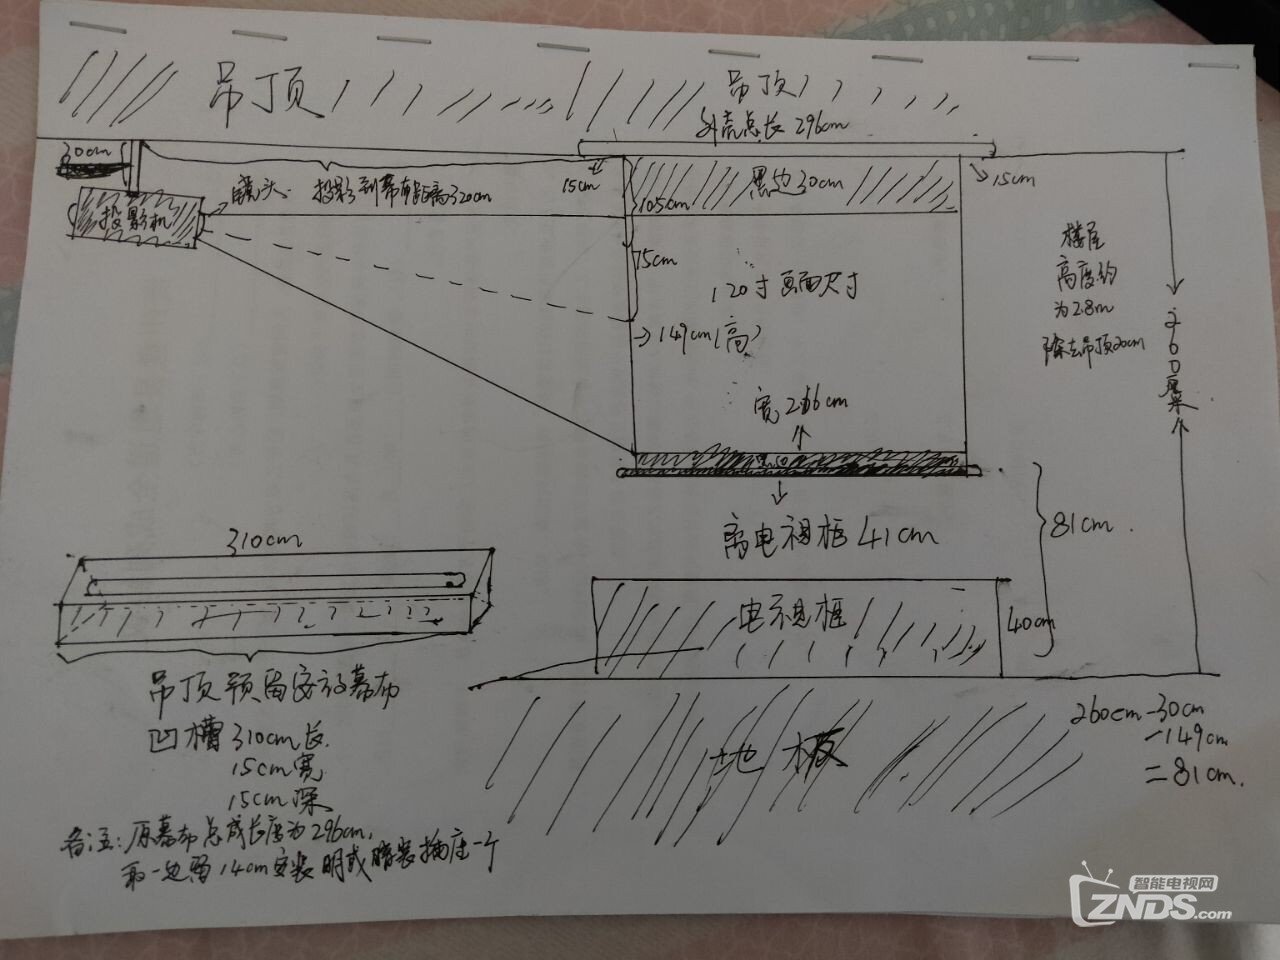 吊顶
吊顶
外壳总长 296cm
30cm
15cm
15cm
镜头
投影到幕布距离320cm
黑边30cm
105cm
投影机
75cm
120寸画面尺寸
149cm(高)
宽 266cm
楼层
高度约
为2.8m
除去吊顶20cm
260厘米
离电视柜 41cm
81cm.
310cm
电视柜
40cm
吊顶预留安放幕布
凹槽 310cm长
15cm宽
15cm深
备注:原幕布总成长度为296cm,
取一边留14cm安装明或暗装插座一个
地板
260cm-30cm
-149cm
=81cm.
智能电视网
ZNDS.com